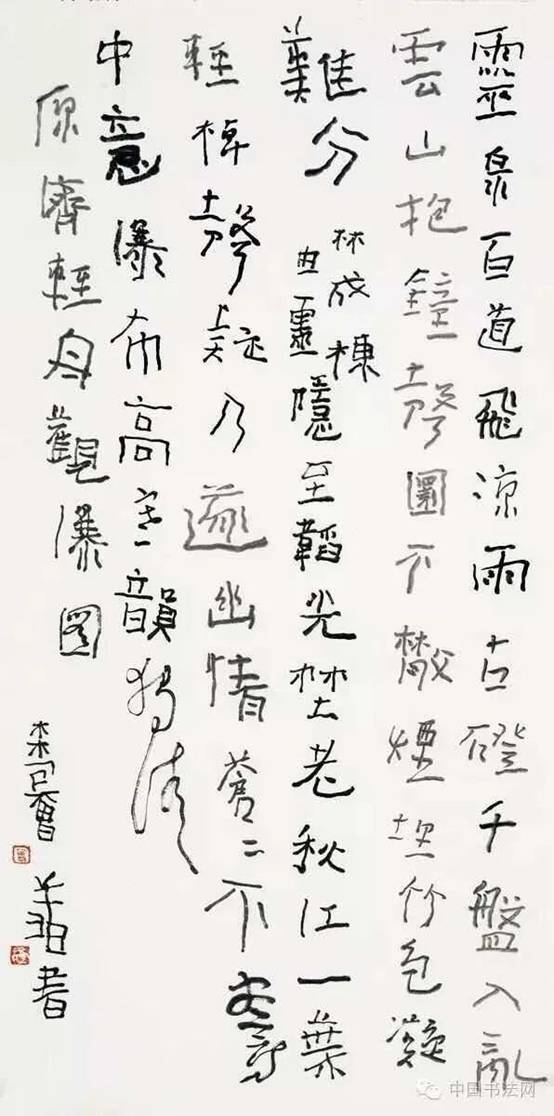 靈泉百道飛涼雨古磴千盤入亂
雲山抱鐘聲圍不散煙竹色凝
難分 林成棟 由靈隱至韜光 埜老秋江一葉
輕棹聲疑乃遂幽情蒼二不盡
中意瀑布高寒韻獨清
原濟輕舟觀瀑圖
曾翔書
中国书法网